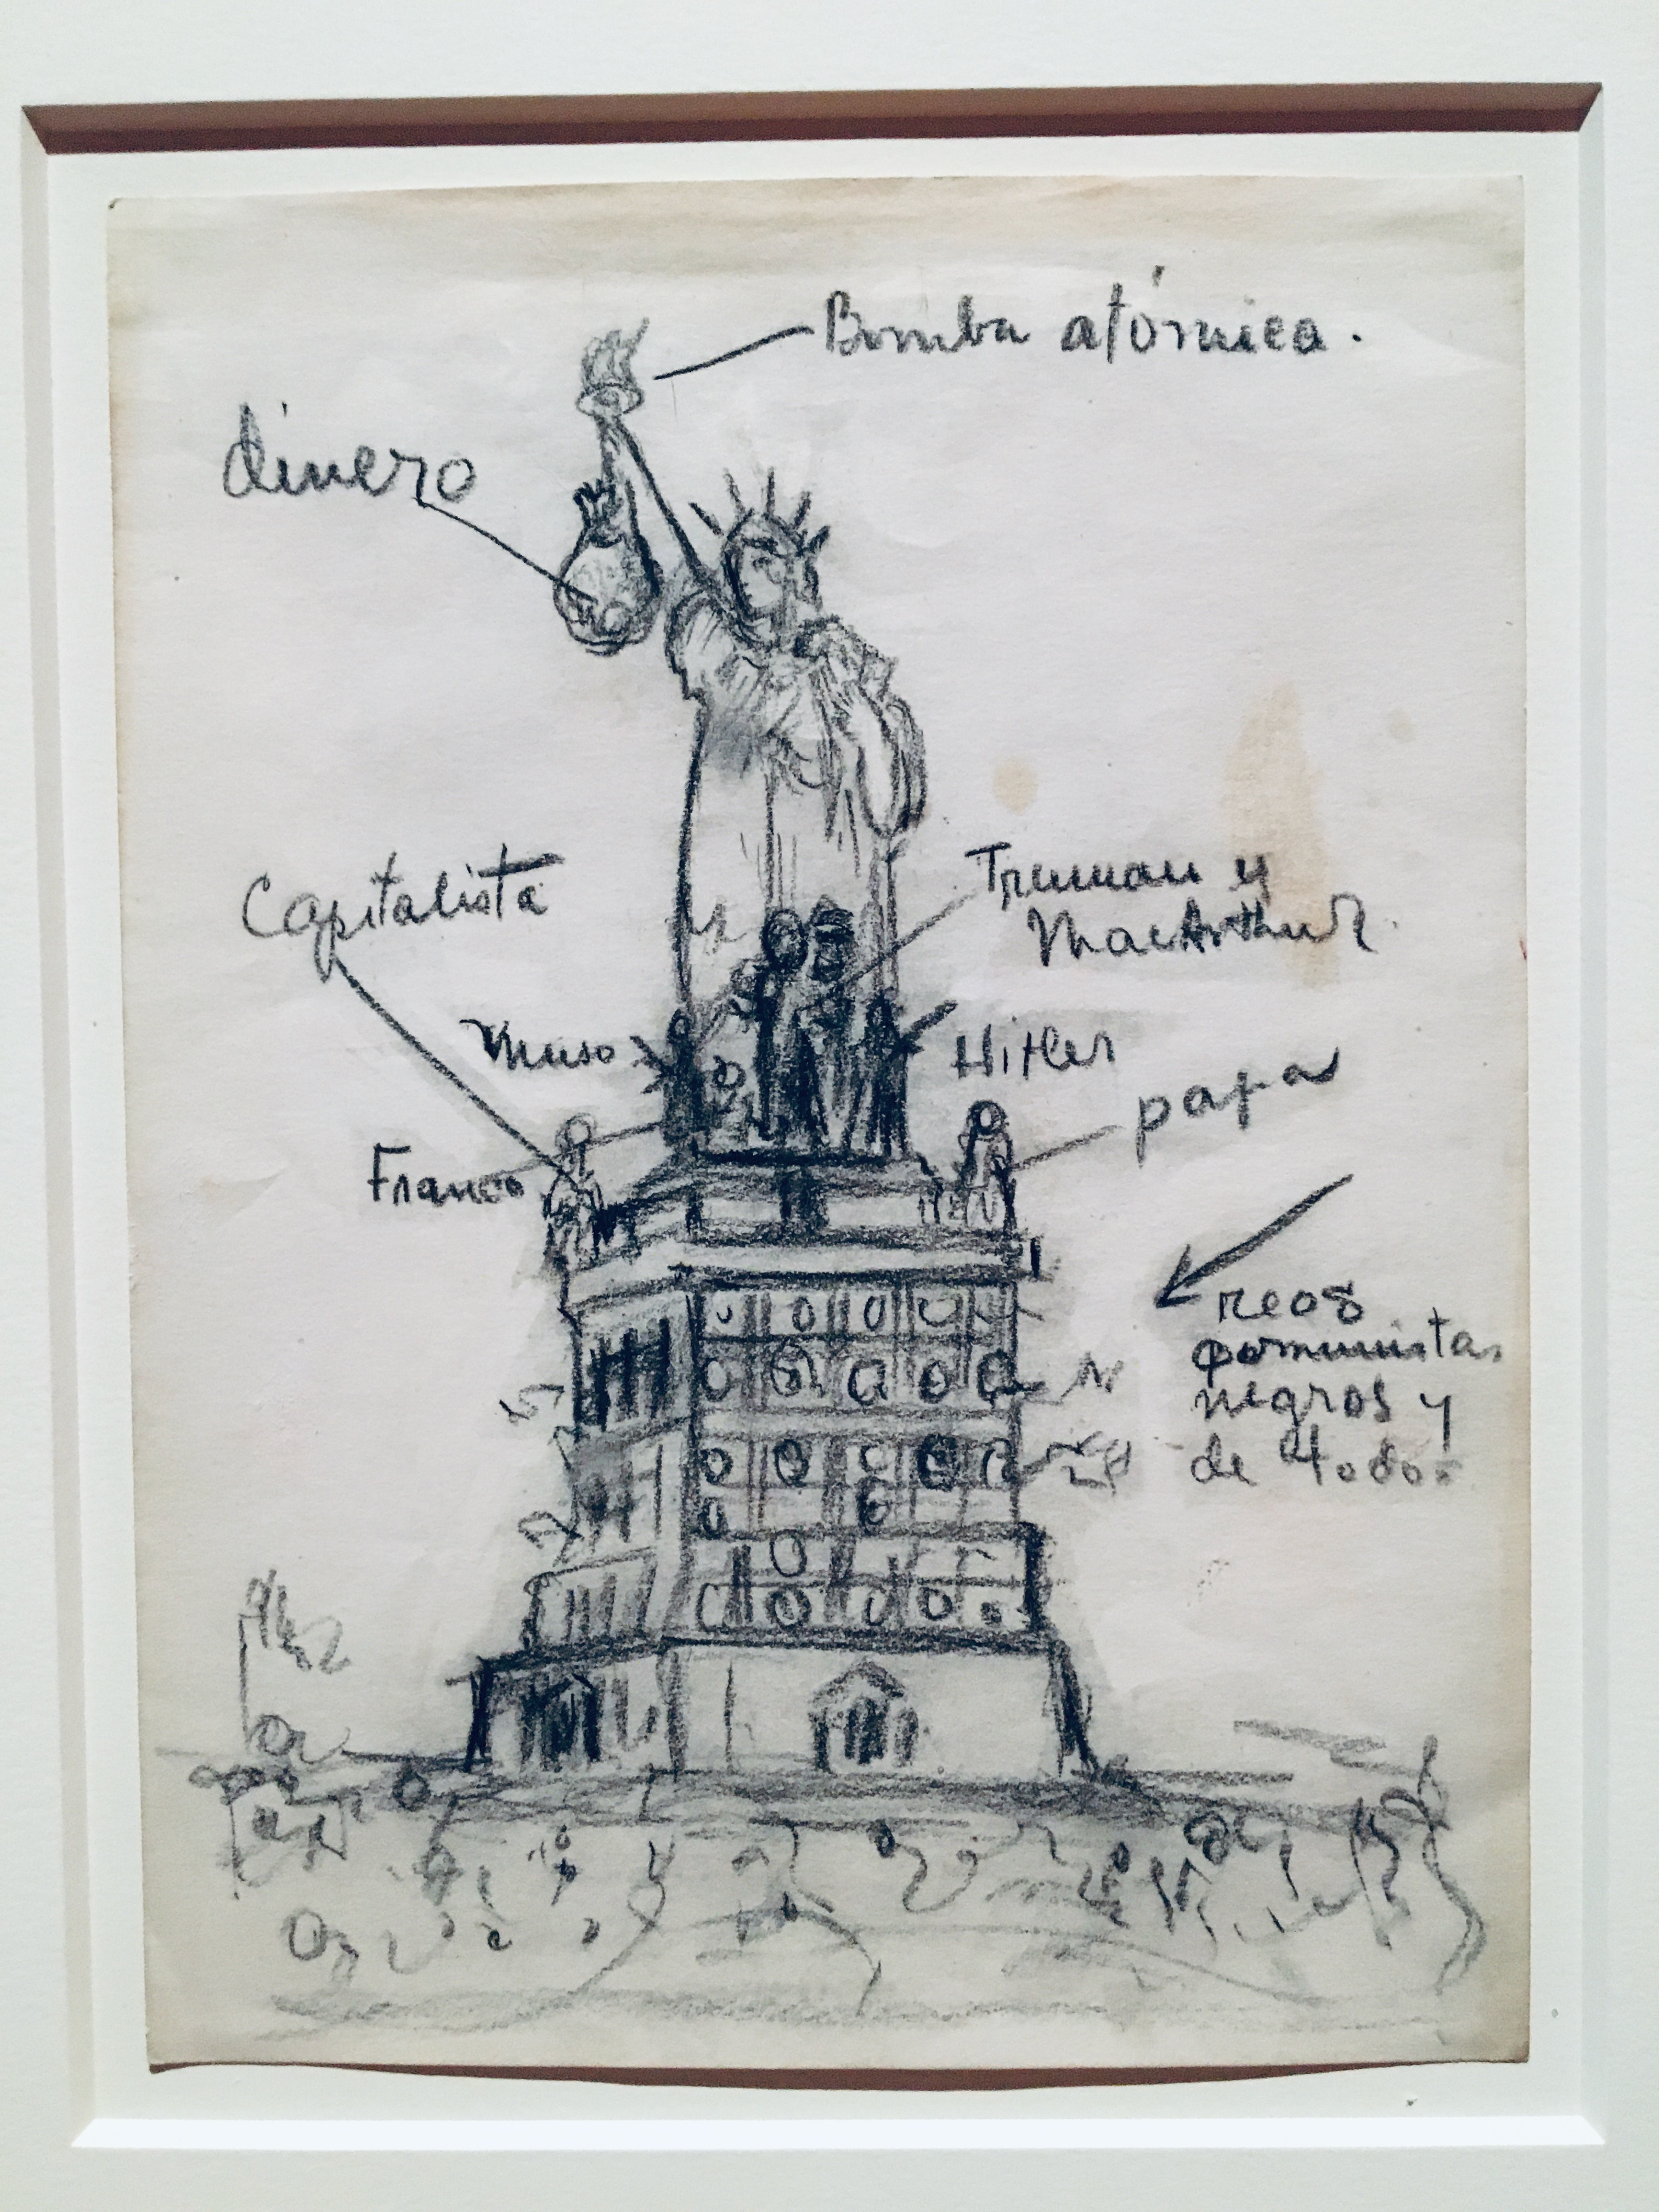 Bomba atómica.
dinero
Capitalista
Truman y
MacArthur.
Muso
Hitler
papa
Franco
reos
comunistas
negros y
de todos